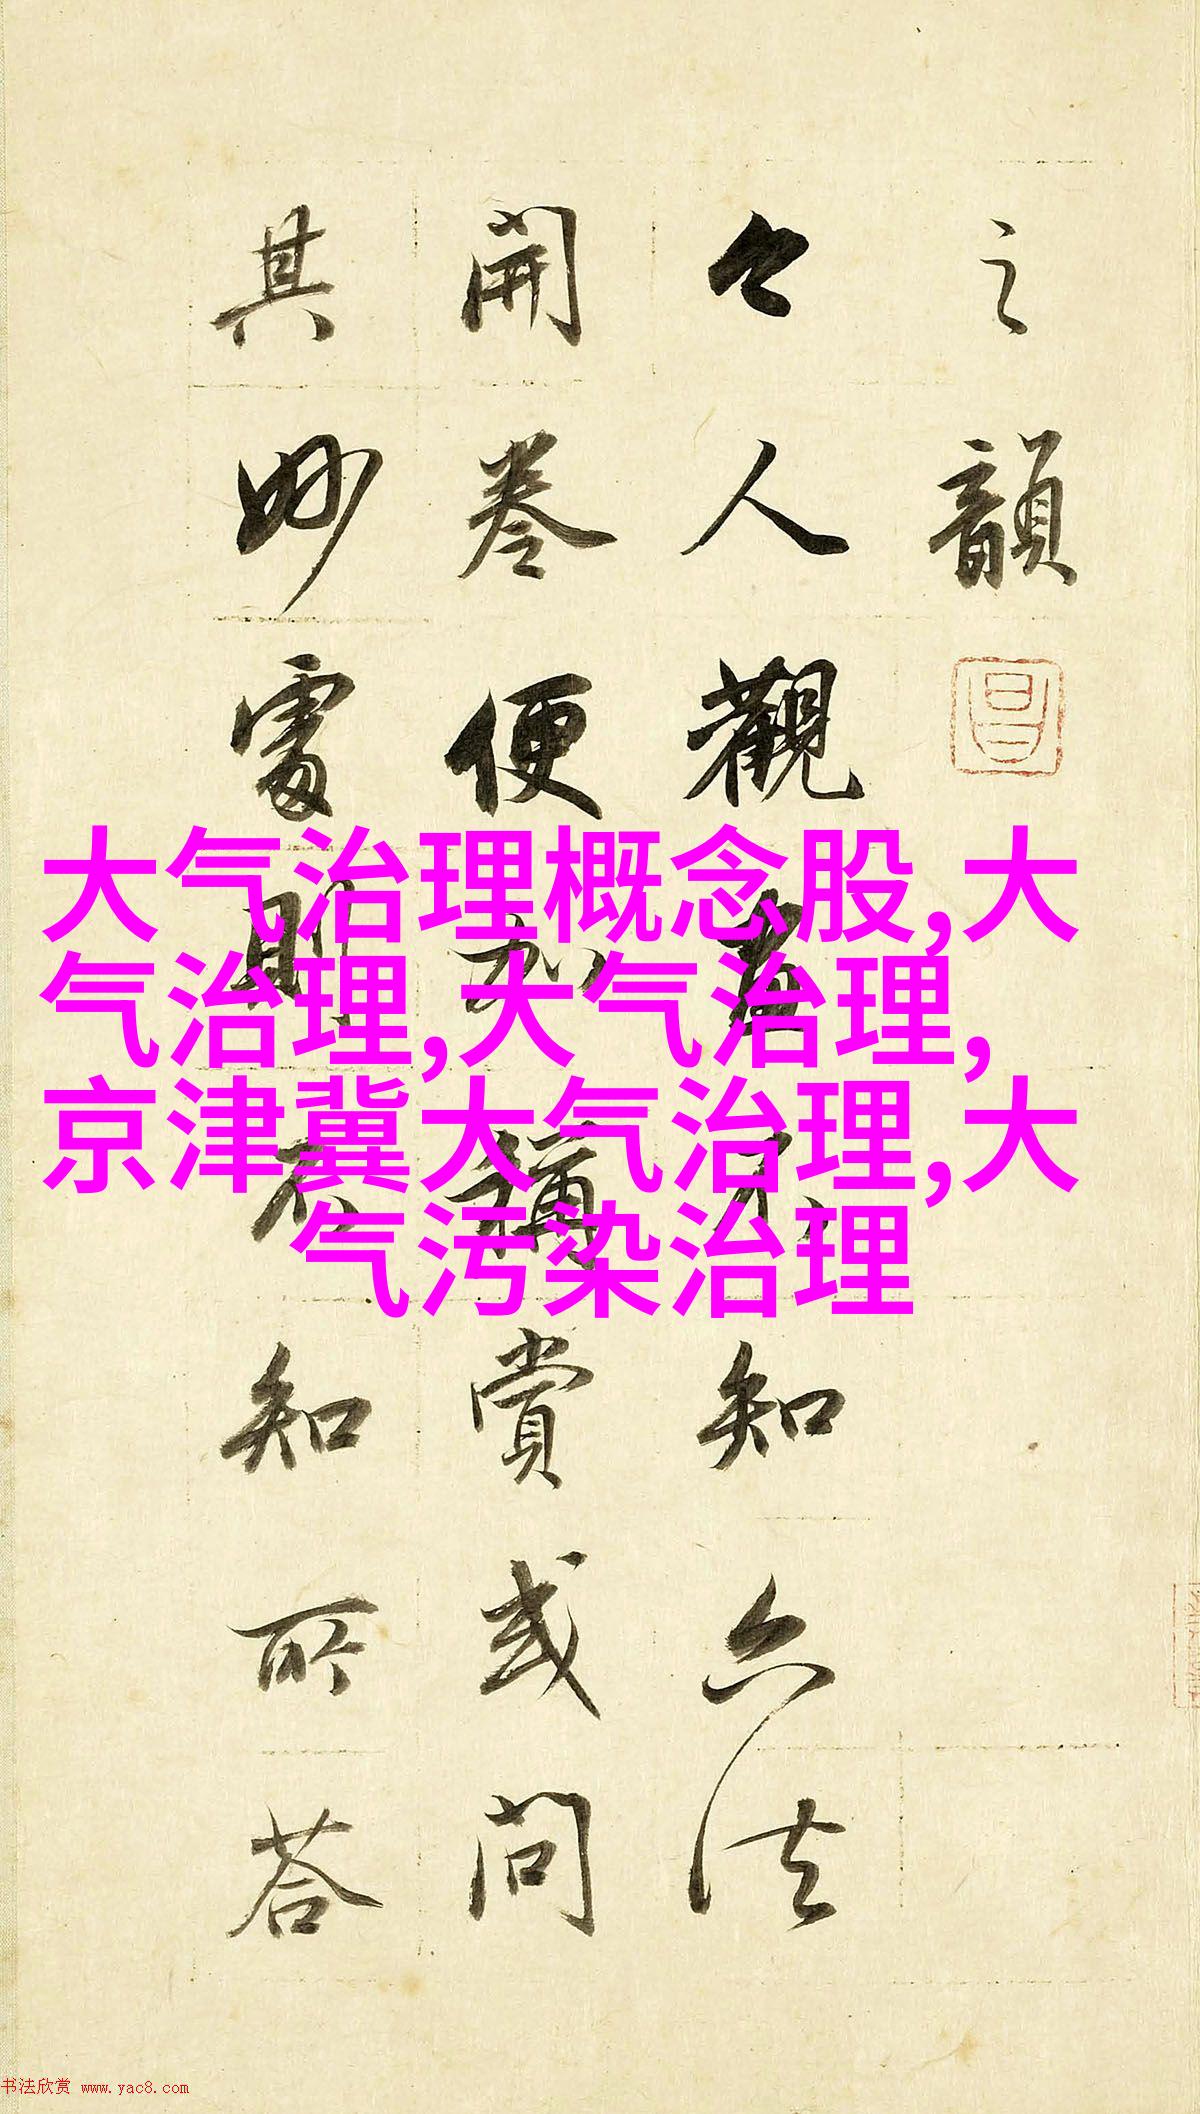 之韻
今人觀畫不知六法
開卷便加稱賞或問
其妙處則不知所答
大气治理概念股,大
气治理,大气治理,
京津冀大气治理,大
气污染治理
书法欣赏 www.yac8.com